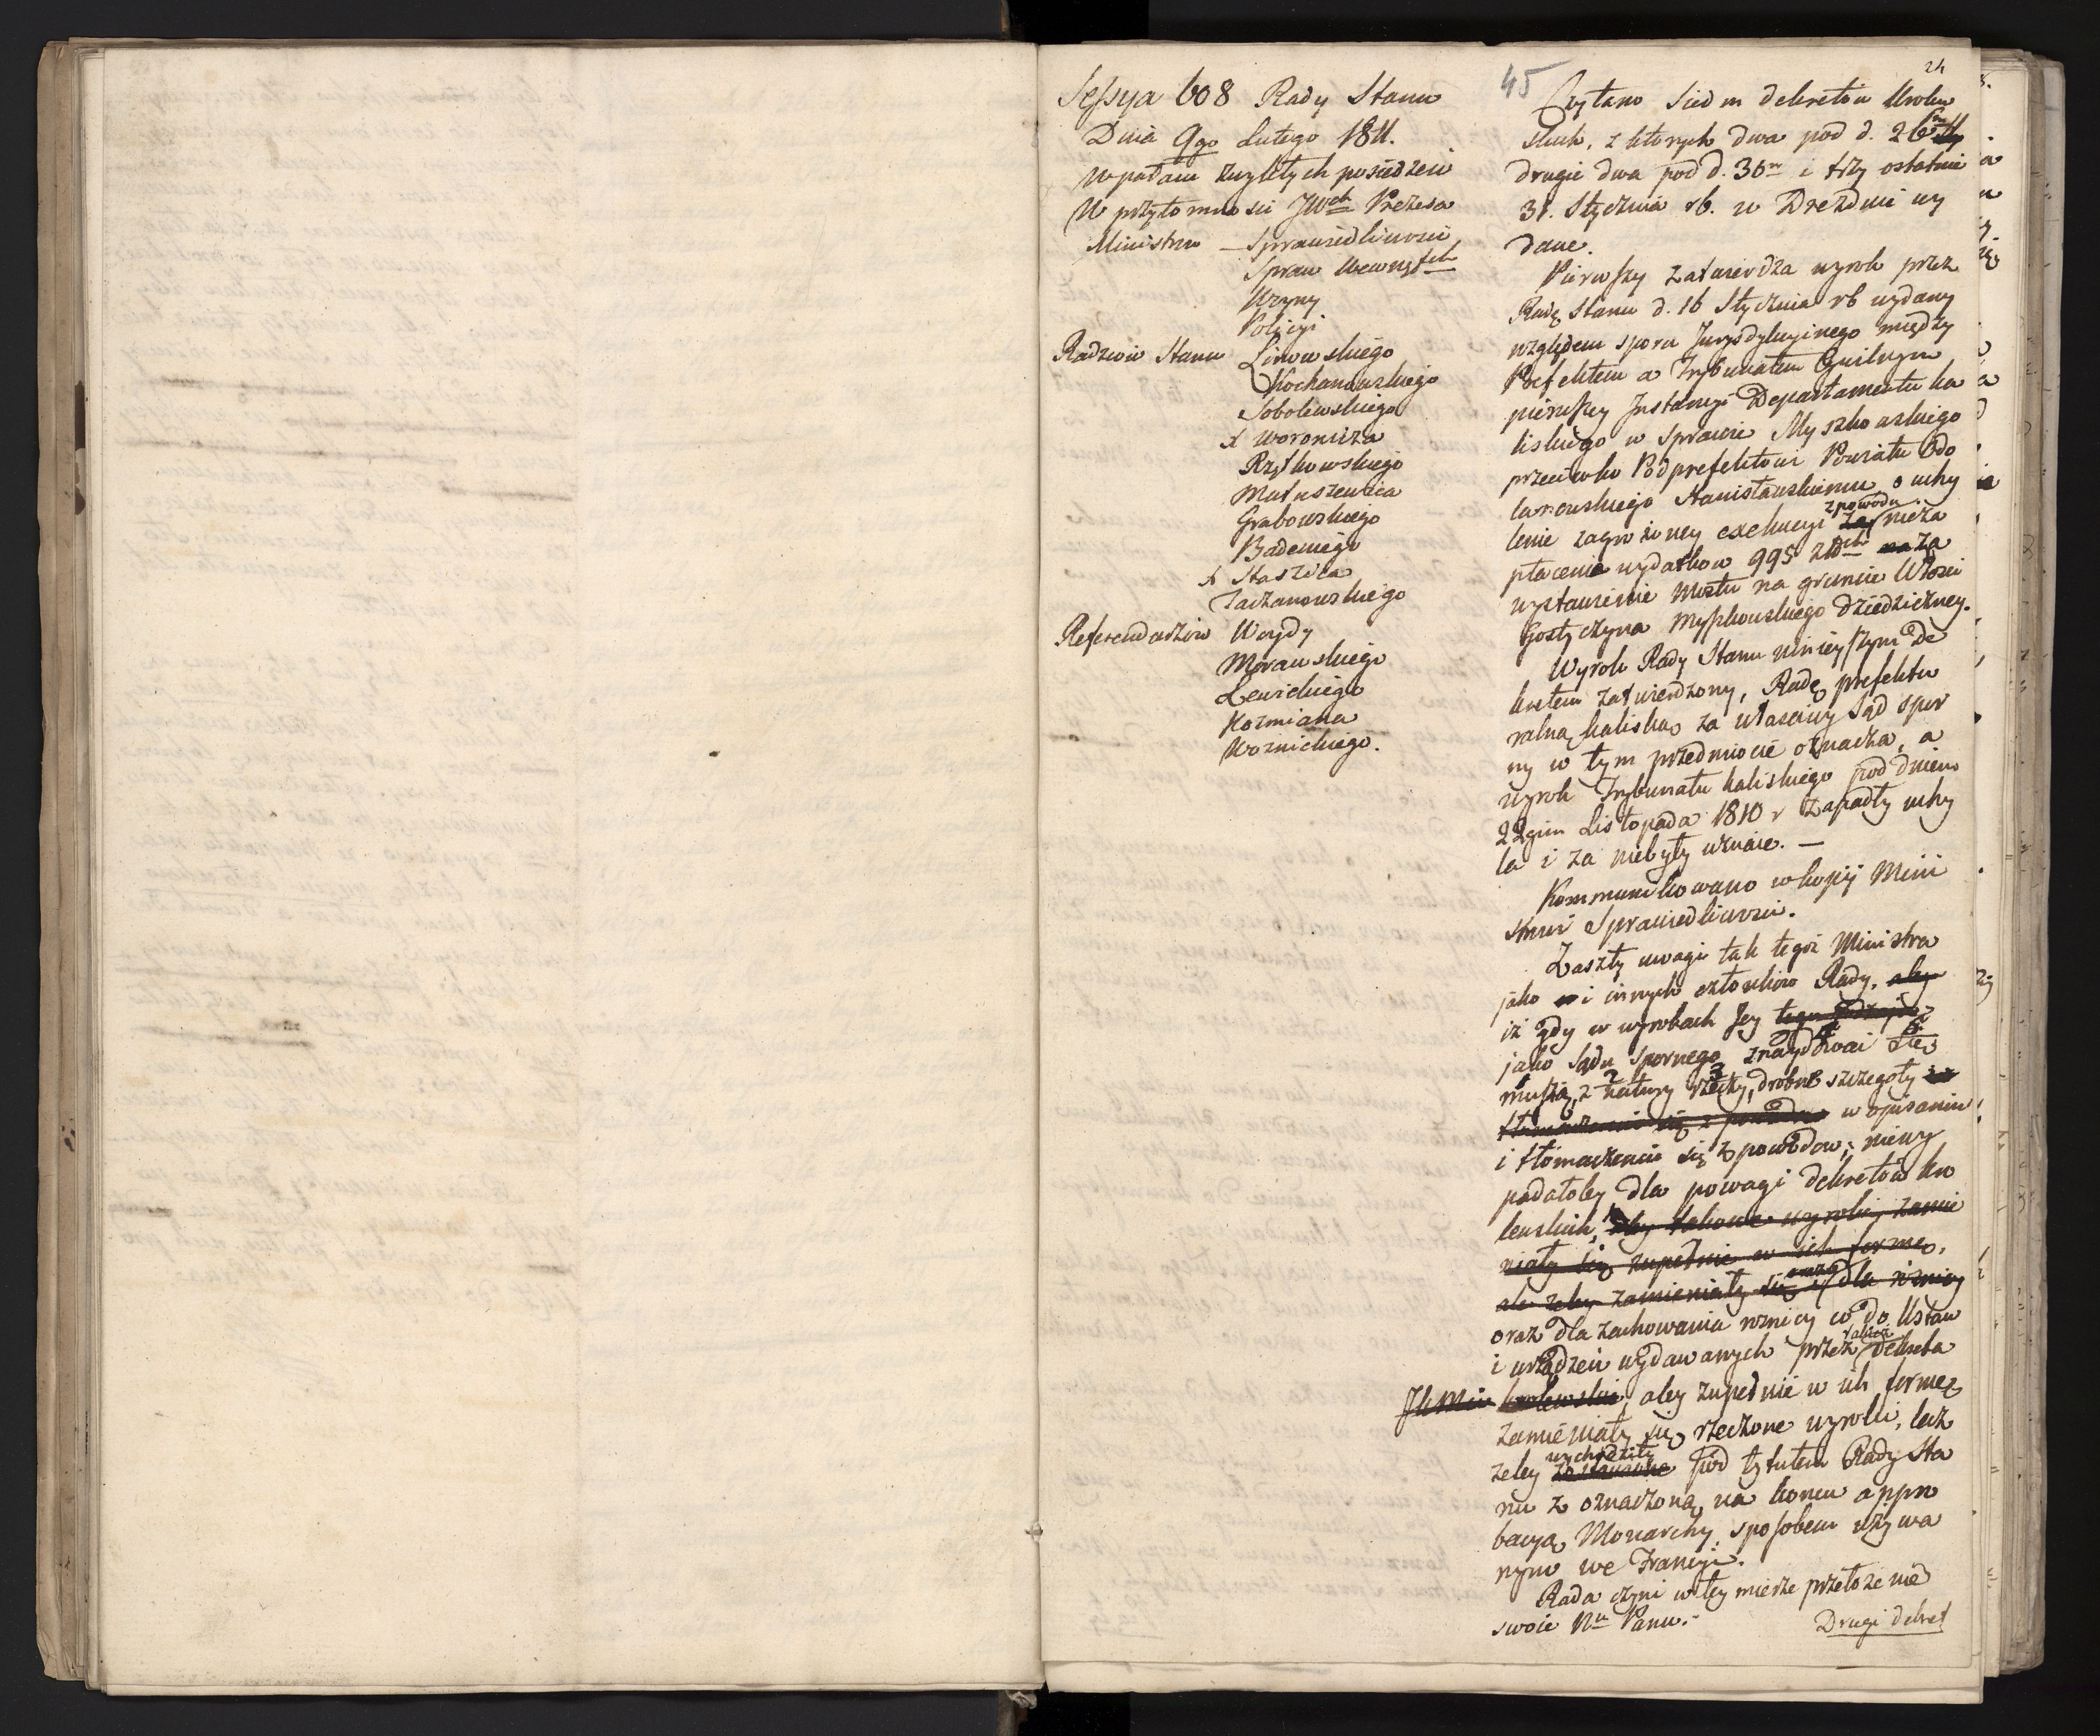 Sessya 608 Rady Stanu
Dnia 9go Lutego 1811.
W pałacu zwykłych posiedzeń
W przytomności JWch Prezesa
Ministrów — Sprawiedliwości
Spraw Wewnętch
Woyny
Policyi
Radzców Stanu Linowskiego
Kochanowskiego
Sobolewskiego
x Woronicza
Rzętkowskiego
Matuszewica
Grabowskiego
Badeniego
x Staszica
Zaczanowskiego
Referendarzów Woydy
Morawskiego
Lewickiego
Kozmiana
Woznickiego.
45
24
Czytano siedm dekretów Królew
skich, z których dwa pod d. 26m
drugie dwa pod d. 30m i trzy ostatnie
31. Stycznia rb. w Dreznie wy
dane.
Pierwszy zatwierdza wyrok przez
Radę Stanu d. 16 Stycznia rb wydany
względem sporu Jurysdykcyinego między
Prefektem a Trybunałem Cywilnym
pierwszey Instancyi Departamentu ka
liskiego w sprawie Myszkowskiego
przeciwko Podprefektowi Powiatu Odo
lanowskiego Stanisławskiemu o uchy
lenie zagrożoney exekucyi z powodu nieza
płacenia wydatków 995 złłch za
wystawienie Mostu na gruncie Włości
Gostyczyna Myszkowskiego dziedziczney.
Wyrok Rady Stanu ninieyszym De
kretem zatwierdzony, Radę prefektu
ralną kaliską za właściwy Sąd spor
ny w tym przedmiocie oznacza, a
wyrok Trybunału kaliskiego pod dniem
22gim Listopada 1810 r zapadły uchy
la i za niebyły uznaie. —
Kommunikowano w kopij Mini
strowi Sprawiedliwości.
Zaszły uwagi tak tegoż Ministra
jako i innych członków Rady, aby
iż gdy w wyrokach Jey tego rodzaju
jako Sądu Spornego znaydować się
muszą, z natury rzeczy, drobne szczegóły
w opisaniu
i tłómaczeniu się z powodów; niewy
padałoby dla powagi dekretów kró
lewskich, aby takowe wyroki zamie
niały się zupełnie w ich formę,
ale żeby zamieniały się oraz dla różnicy
oraz dla zachowania różnicy co do Ustaw
i urządzeń wydawanych przez takież dekreta
królewskie, aby zupełnie w ich formę
zamieniały się rzeczone wyroki, lecz
żeby wychodziły pod tytułem Rady Sta
nu z oznaczoną na końcu appro
bacyą Monarchy sposobem używa
nym we Francyi.
Rada czyni w tey mierze przełożenie
swoie Nu Panu.
Drugi dekret